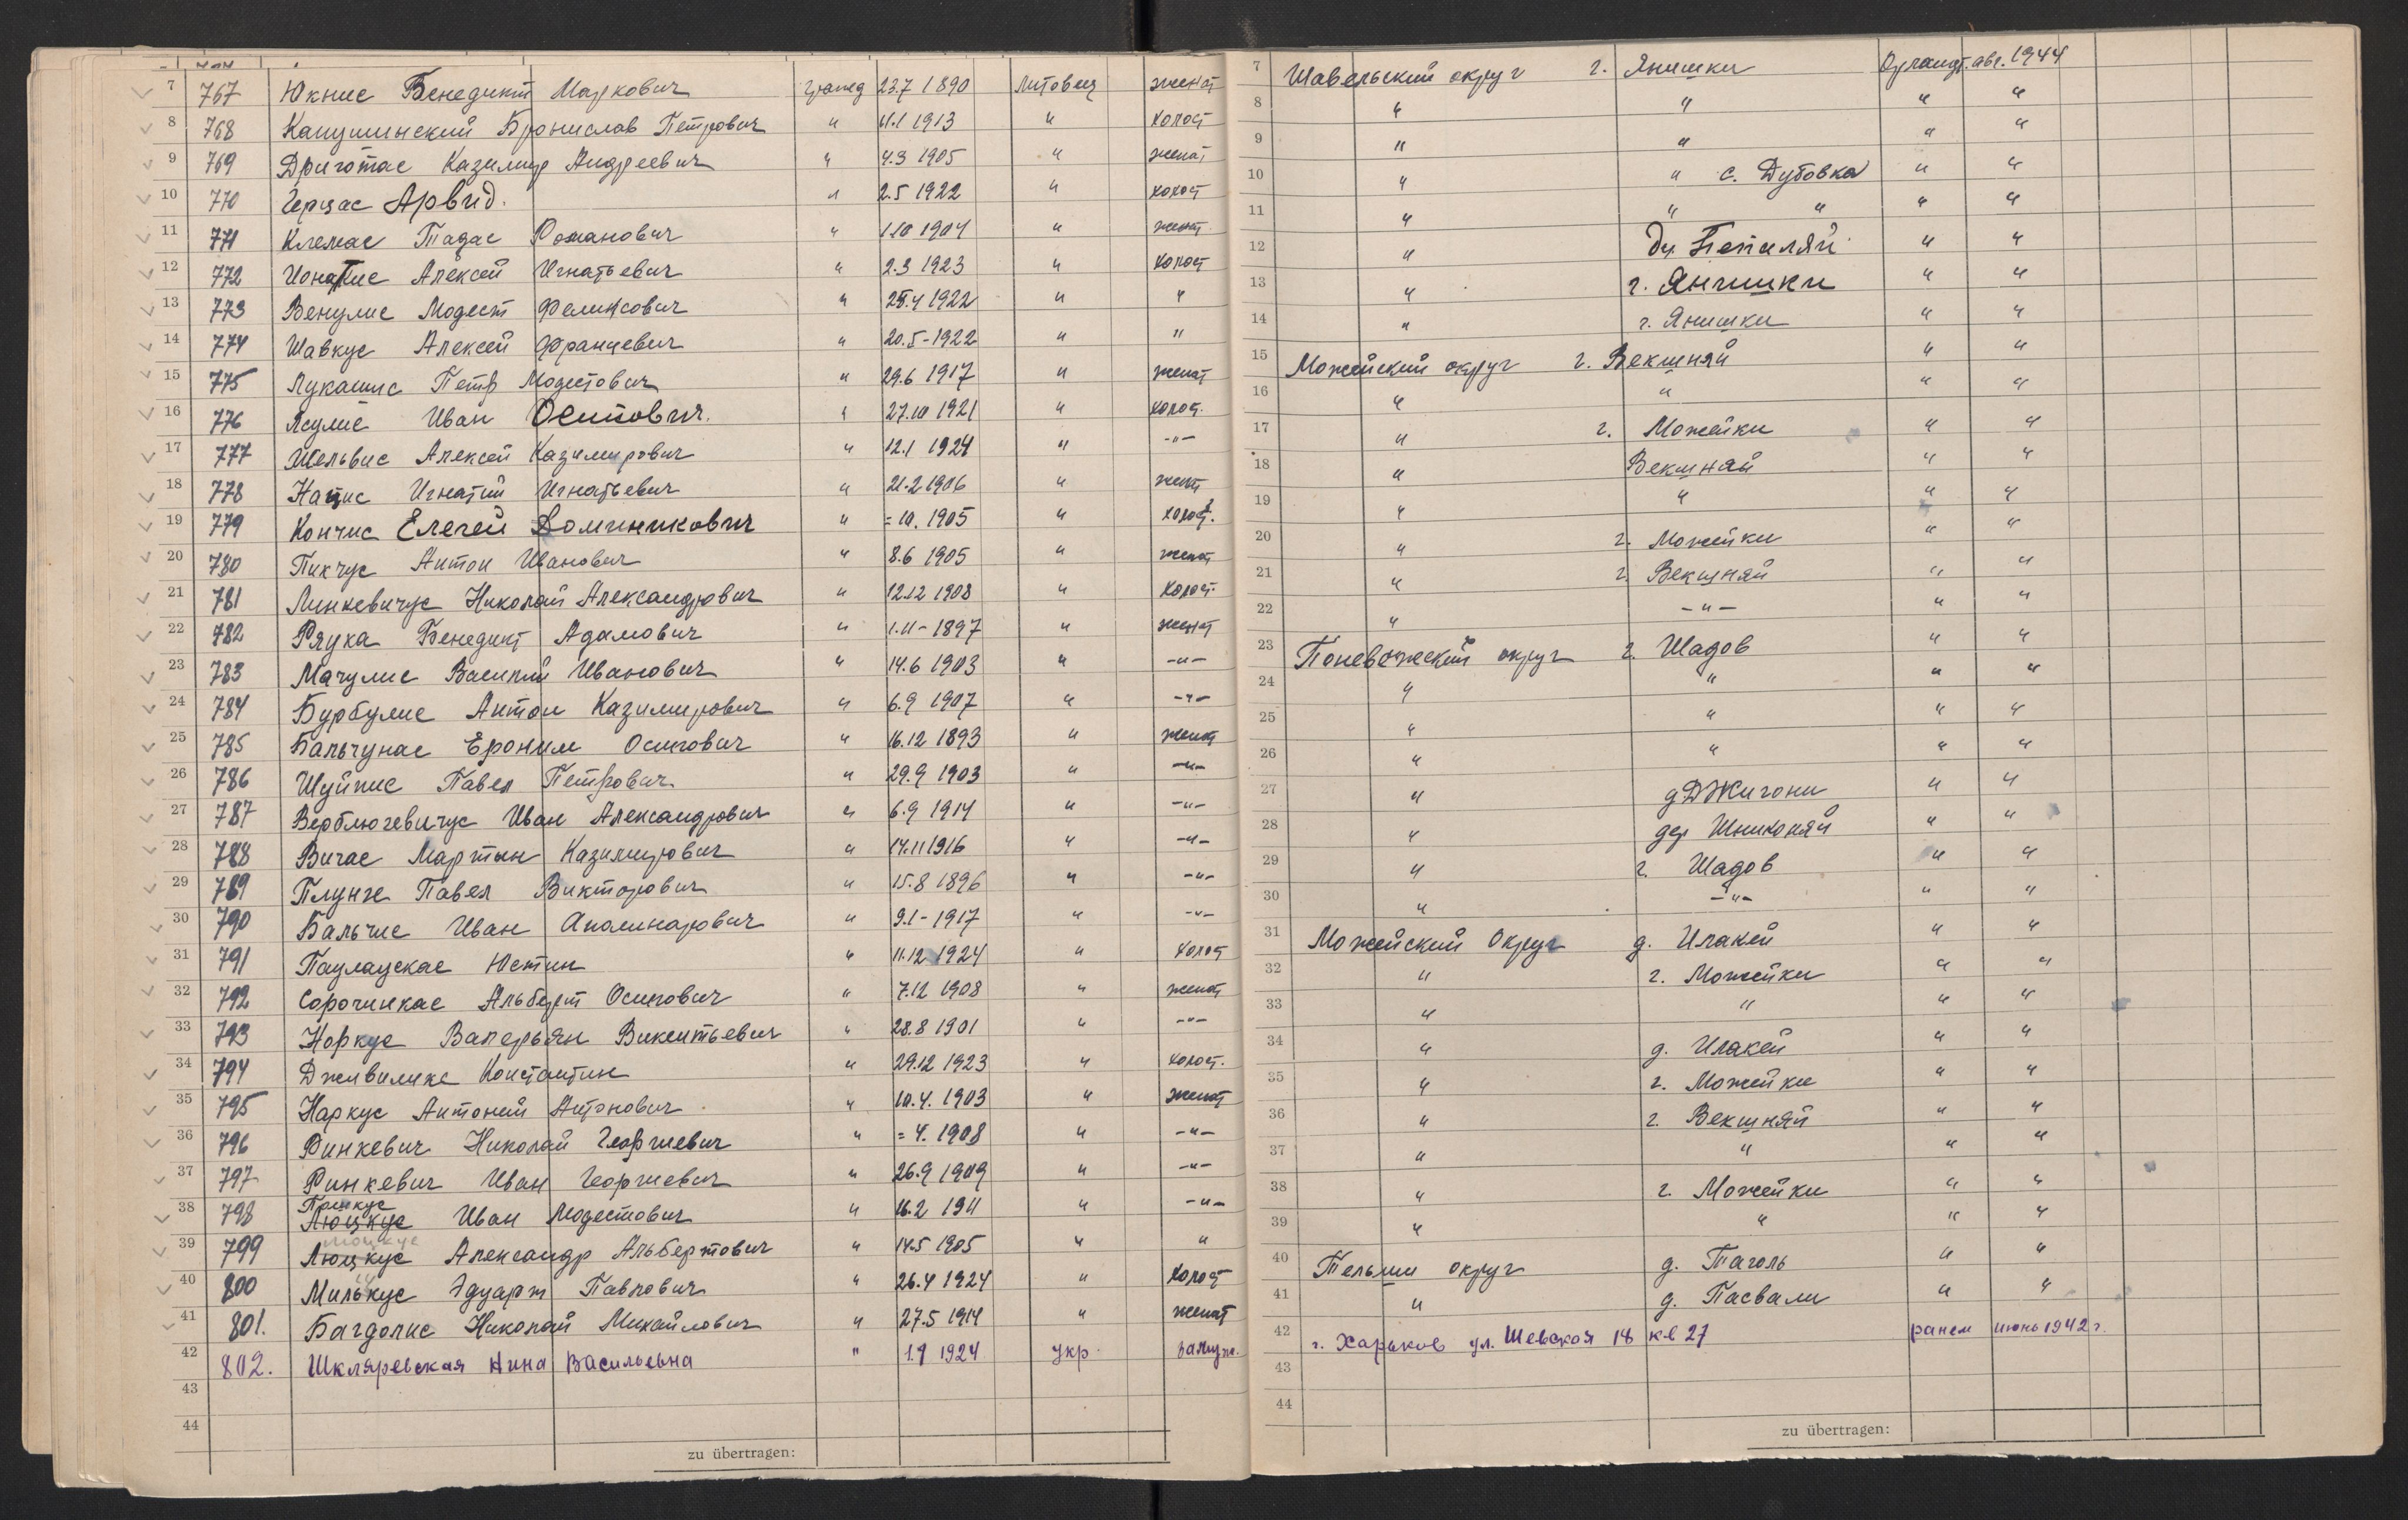 7 767 Юкнис Бенедикт Маркович гражд 23.7 1890 Литовец женат 7 Шавельский округ г. Янишки Орланд. авг. 1944
8 768 Капушинский Бронислав Петрович " 11.1 1913 " холост 8 " " " "
9 769 Дриготас Казимир Андреевич " 4.3 1905 " женат 9 " " " "
10 770 Герцас Арвид. " 2.5 1922 " холост 10 " " с. Дутовка " "
11 771 Клемас Тадас Романович " 1.10 1904 " женат 11 " " " " "
12 772 Ионатис Алексей Игнатьевич " 2.3 1923 " холост 12 " Пепиляй " "
13 773 Венулис Модест Феликсович " 25.4 1922 " " 13 " г. Янишки " "
14 774 Шавкус Алексей Францевич " 20.5-1922 " " 14 " г. Янишки " "
15 775 Лукашис Петр Модестович " 29.6 1917 " женат 15 Можейский округ г. Векшняй " "
16 776 Ясулис Иван Осипович. " 27.10 1921 " холост. 16 " " " "
17 777 Жельвис Алексей Казимирович " 12.1 1924 " -"- 17 " г. Можейки " "
18 778 Нацис Игнатий Игнатьевич " 21.2 1906 " женат 18 " Векшняй " "
19 779 Кончис Елегей Доминикович " = 10. 1905 " холост. 19 " " " "
20 780 Пикчус Антон Иванович " 8.6 1905 " женат 20 " г. Можейки " "
21 781 Линкевичус Николай Александрович " 12.12 1908 " холост. 21 " г. Векшняй " "
22 782 Ряука Бенедикт Адамович " 1.11-1897 " женат 22 " -"- " "
23 783 Мачулис Василий Иванович " 14.6 1903 " -"- 23 Поневежский округ г. Шадов " "
24 784 Бурбулис Антон Казимирович " 6.9 1907 " -"- 24 " " " "
25 785 Бальчунас Ероним Осипович " 16.12 1893 " женат 25 " " " "
26 786 Шуйпис Павел Петрович " 29.9 1903 " -"- 26 " " " "
27 787 Верблюгевичус Иван Александрович " 6.9 1914 " -"- 27 " д Джигони " "
28 788 Вичас Мартын Казимирович " 14.11 1916 " -"- 28 " дер Шниконяй " "
29 789 Плунге Павел Викторович " 15.8 1896 " -"- 29 " г. Шадов " "
30 790 Бальчис Иван Аполинарович " 9.1-1917 " -"- 30 " -"- " "
31 791 Паулаускас Юстин " 11.12 1924 " холост 31 Можейский Округ д. Илакей " "
32 792 Сорочинкас Альберт Осипович " 7.12 1908 " женат 32 " г. Можейки " "
33 793 Норкус Валерьян Викентьевич " 28.8 1901 " -"- 33 " " " "
34 794 Дживиликс Константин " 29.12 1923 " холост. 34 " д. Илакей " "
35 795 Наркус Антоний Антонович " 10.4. 1903 " женат 35 " г. Можейки " "
36 796 Ринкевич Николай Георгиевич " = 4. 1908 " -"- 36 " г. Векшняй " "
37 797 Ринкевич Иван Георгиевич " 26.9 1909 " -"- 37 " " " "
38 798 Люцкус Иван Модестович " 16.2 1911 " -"- 38 " г. Можейки " "
39 799 Люцкус Александр Альбертович " 14.5 1905 " " 39 " " " "
40 800 Милькус Эдуарт Павлович " 26.4 1924 " холост 40 Тельши округ д. Таголь " "
41 801. Багдонис Николай Михайлович " 27.5 1914 " женат 41 " д. Пасвали " "
42 802. Шкляревская Нина Васильевна " 1.9 1924 укр. замуж. 42 г. Харьков ул. Шевская 18 кв 27 ранен июнь 1942 г.
43 43
44 44
zu übertragen: zu übertragen: